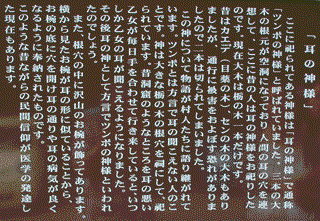 「耳の神様」
ここに祀られてある神様は「耳の神様」で通称
「ツンボの神様」と呼ばれていました。二本の大
木の根元が空洞になっており、人間の耳の穴を連
想して、ここに昔の人は耳の神様を祀りました。
てすでにこの木の神様は枯れ一本だけです。
昔は、カンデノ木(目薬の木)の大木もあり
ましたが、通行に被害をおよぼす恐れがありま
したので二本は切られてしまいました。
この神について物語が村人たちに語り継がれて
います。「ツンボ」とは方言で耳の聞こえない人のこ
とです。神は大きな栃の木の根穴を宿にして祀
られています。昔洞窟のようなところを耳の悪い
乙女が毎日手を合わせて行き来していると、いつ
しか乙女の耳が聞こえるようになりました。
その後耳の神として方言でツンボの神様といわれ
たのでしょう。
また、根穴の中に沢山のお椀が飾ってあります。
横から見たお椀が耳の形に似ていることから。
お椀の底に穴を開け耳の通りや耳の病気が良く
なるように奉納されたものです。
このような昔ながらの民間信仰が医学の発達し
た現在もあります。